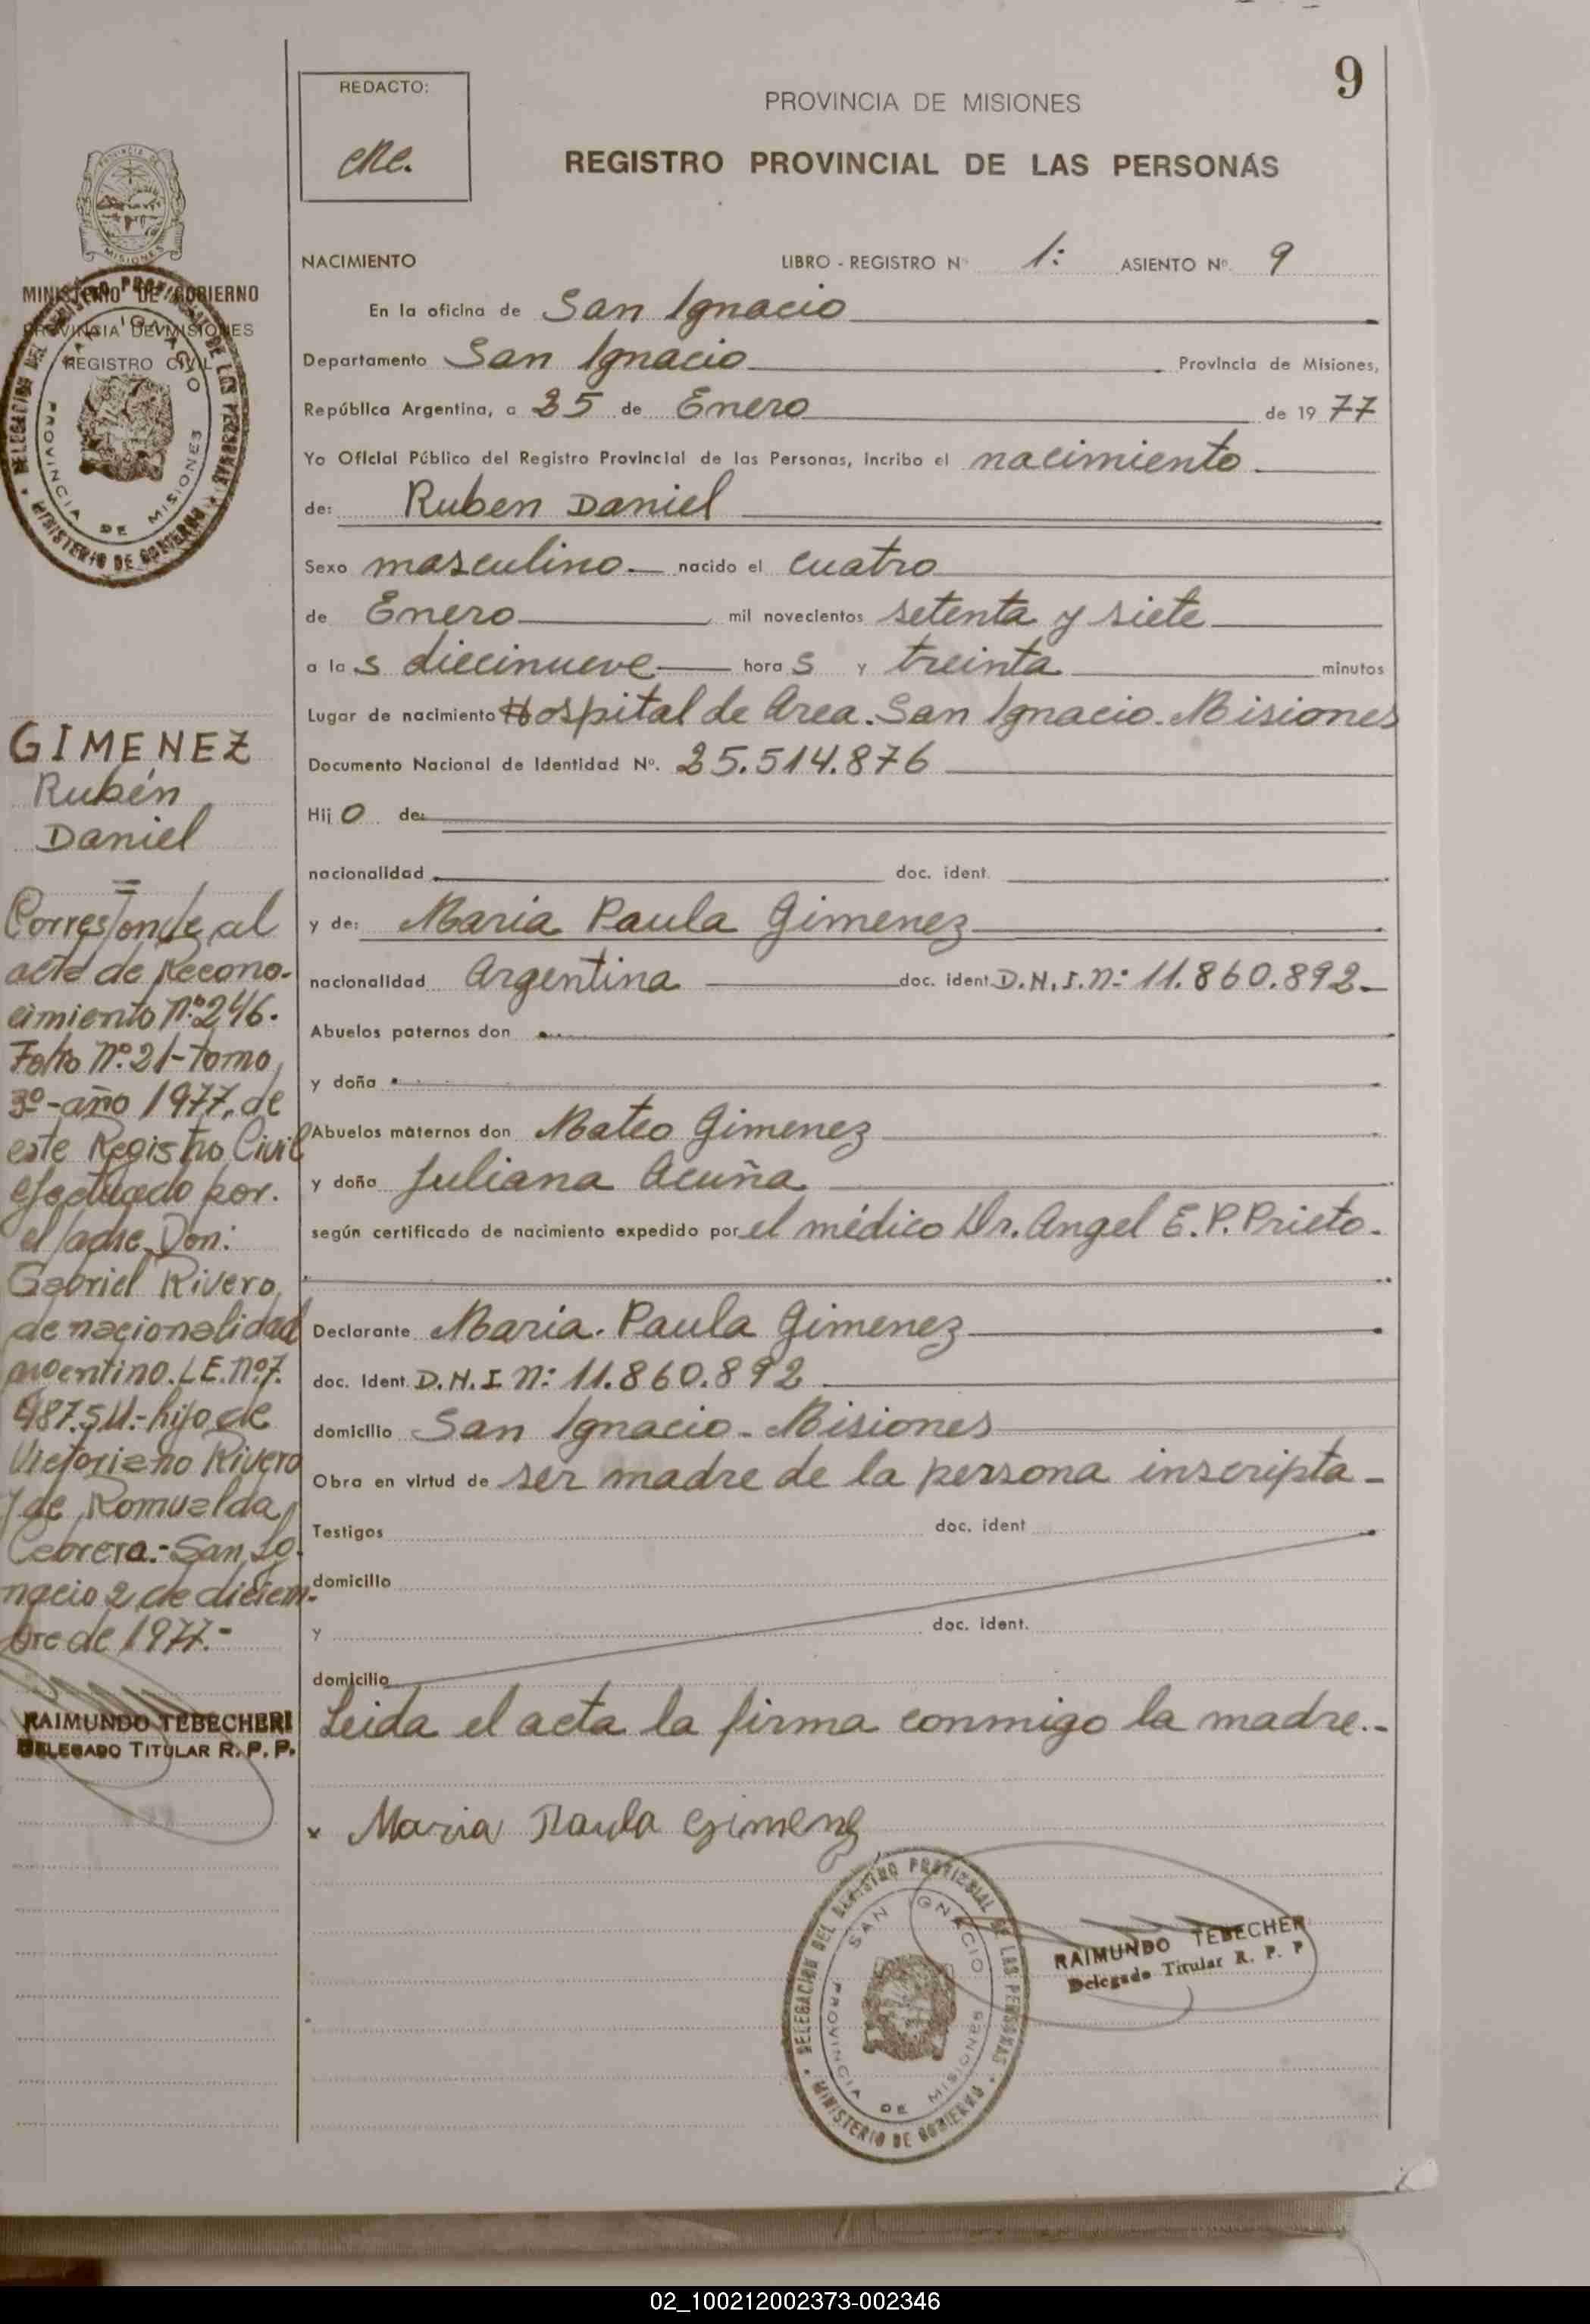 9
REDACTO:
PROVINCIA DE MISIONES
REGISTRO PROVINCIAL DE LAS PERSONAS
MISIONES
MINISTERIO DE GOBIERNO
PROVINCIA DE MISIONES
REGISTRO CIVIL
DELEGACION DEL REGISTRO PROVINCIAL DE LAS PERSONAS
MINISTERIO DE GOBIERNO
SAN IGNACIO
PROVINCIA DE MISIONES
NACIMIENTO LIBRO - REGISTRO Nº 1: ASIENTO Nº 9
En la oficina de San Ignacio
Departamento San Ignacio Provincia de Misiones,
República Argentina, a 25 de Enero de 19 77
Yo Oficial Público del Registro Provincial de las Personas, incribo el nacimiento
de: Ruben Daniel
Sexo masculino nacido el cuatro
de Enero mil novecientos setenta y siete
a las diecinueve horas y treinta minutos
Lugar de nacimiento Hospital de Area. San Ignacio. Misiones
Documento Nacional de Identidad Nº. 25.514.876
Hijo de:
nacionalidad doc. ident.
y de: Maria Paula Gimenez
nacionalidad Argentina doc. ident. D.N.I. n: 11.860.892
Abuelos paternos don
y doña
Abuelos maternos don Mateo Gimenez
y doña Juliana Acuña
según certificado de nacimiento expedido por el médico Dr. Angel E. P. Prieto.
Declarante Maria Paula Gimenez
doc. Ident. D.N.I n: 11.860.892
domicilio San Ignacio - Misiones
Obra en virtud de ser madre de la persona inscripta -
Testigos doc. ident
domicilio
y doc. ident.
domicilio
Leida el acta la firma conmigo la madre.-
x Maria Paula Gimenez
GIMENEZ
Rubén
Daniel
=
Corresponde al
acta de Recono-
cimiento Nº 246.
Folio Nº. 21 - Tomo
3º - año 1977, de
este Registro Civil
efectuado por.
el padre Don:
Gabriel Rivero,
de nacionalidad
argentino. L.E. Nº 7.
487.511.- hijo de
Victoriano Rivero
y de Romualda
Cabrera.- San Ig-
nacio 2 de diciem-
bre de 1977.-
RAIMUNDO TEBECHERI
DELEGADO TITULAR R. P. P.
DELEGACION DEL REGISTRO PROVINCIAL DE LAS PERSONAS
MINISTERIO DE GOBIERNO
SAN IGNACIO
PROVINCIA DE MISIONES
RAIMUNDO TEBECHER
Delegado Titular R. P. P
02_100212002373-002346